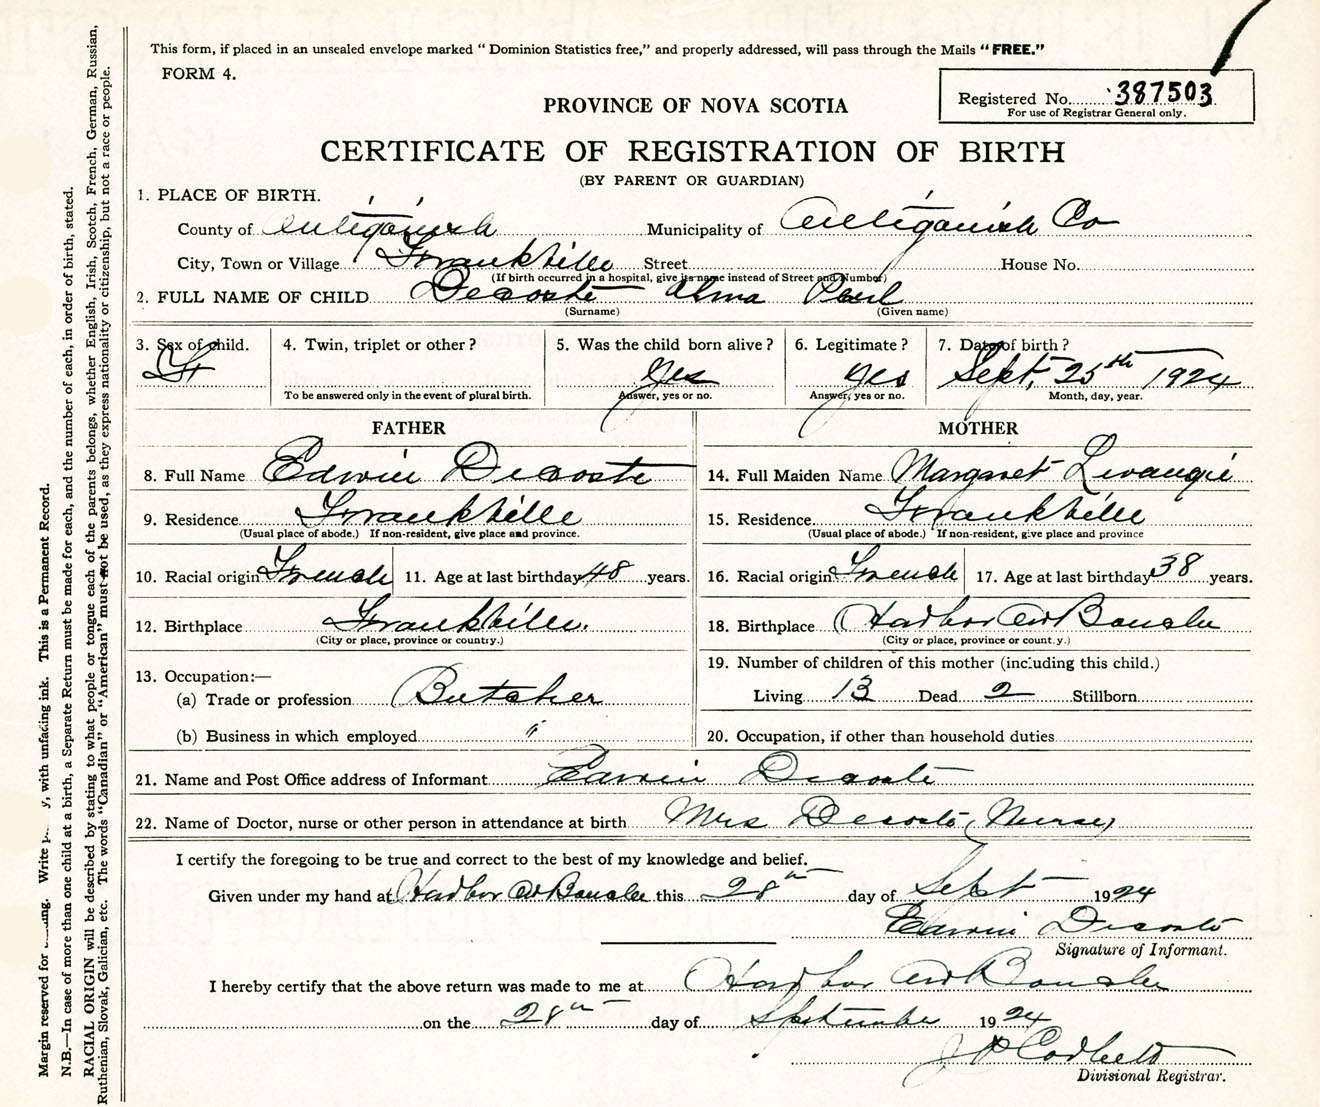 This form, if placed in an unsealed envelope marked “ Dominion Statistics free,” and properly addressed, will pass through the Mails “FREE.”
FORM 4.
Registered No. 387503
For use of Registrar General only.
PROVINCE OF NOVA SCOTIA
CERTIFICATE OF REGISTRATION OF BIRTH
(BY PARENT OR GUARDIAN)
1. PLACE OF BIRTH.
County of Antigonish Municipality of Antigonish Co
City, Town or Village Frankville Street House No.
(If birth occurred in a hospital, give its name instead of Street and Number)
2. FULL NAME OF CHILD Decoste Alma Perl
(Surname) (Given name)
3. Sex of child. 4. Twin, triplet or other? 5. Was the child born alive? 6. Legitimate? 7. Date of birth?
F Yes Yes Sept, 25th 1924
To be answered only in the event of plural birth. Answer, yes or no. Answer, yes or no. Month, day, year.
FATHER
8. Full Name Edwin Decoste
9. Residence Frankville
(Usual place of abode.) If non-resident, give place and province.
10. Racial origin French 11. Age at last birthday 48 years.
12. Birthplace Frankville.
(City or place, province or country.)
13. Occupation:—
(a) Trade or profession Butcher
(b) Business in which employed "
MOTHER
14. Full Maiden Name Margaret Levangie
15. Residence Frankville
(Usual place of abode.) If non-resident, give place and province
16. Racial origin French 17. Age at last birthday 38 years.
18. Birthplace Harbor Au Bouche
(City or place, province or country.)
19. Number of children of this mother (including this child.)
Living 13 Dead 2 Stillborn
20. Occupation, if other than household duties
21. Name and Post Office address of Informant Edwin Decoste
22. Name of Doctor, nurse or other person in attendance at birth Mrs Decoste (Nurse)
I certify the foregoing to be true and correct to the best of my knowledge and belief.
Given under my hand at Harbor Au Bouche this 28th day of Sept 1924
Edwin Decoste
Signature of Informant.
I hereby certify that the above return was made to me at Harbor Au Bouche
on the 28th day of September 1924
J P Corbett
Divisional Registrar.
Margin reserved for Write with unfading ink. This is a Permanent Record.
N.B.—In case of more than one child at a birth, a Separate Return must be made for each, and the number of each, in order of birth, stated.
RACIAL ORIGIN will be described by stating to what people or tongue each of the parents belongs, whether English, Irish, Scotch, French, German, Russian,
Ruthenian, Slovak, Galician, etc. The words “Canadian” or “American” must not be used, as they express nationality or citizenship, but not a race or people.